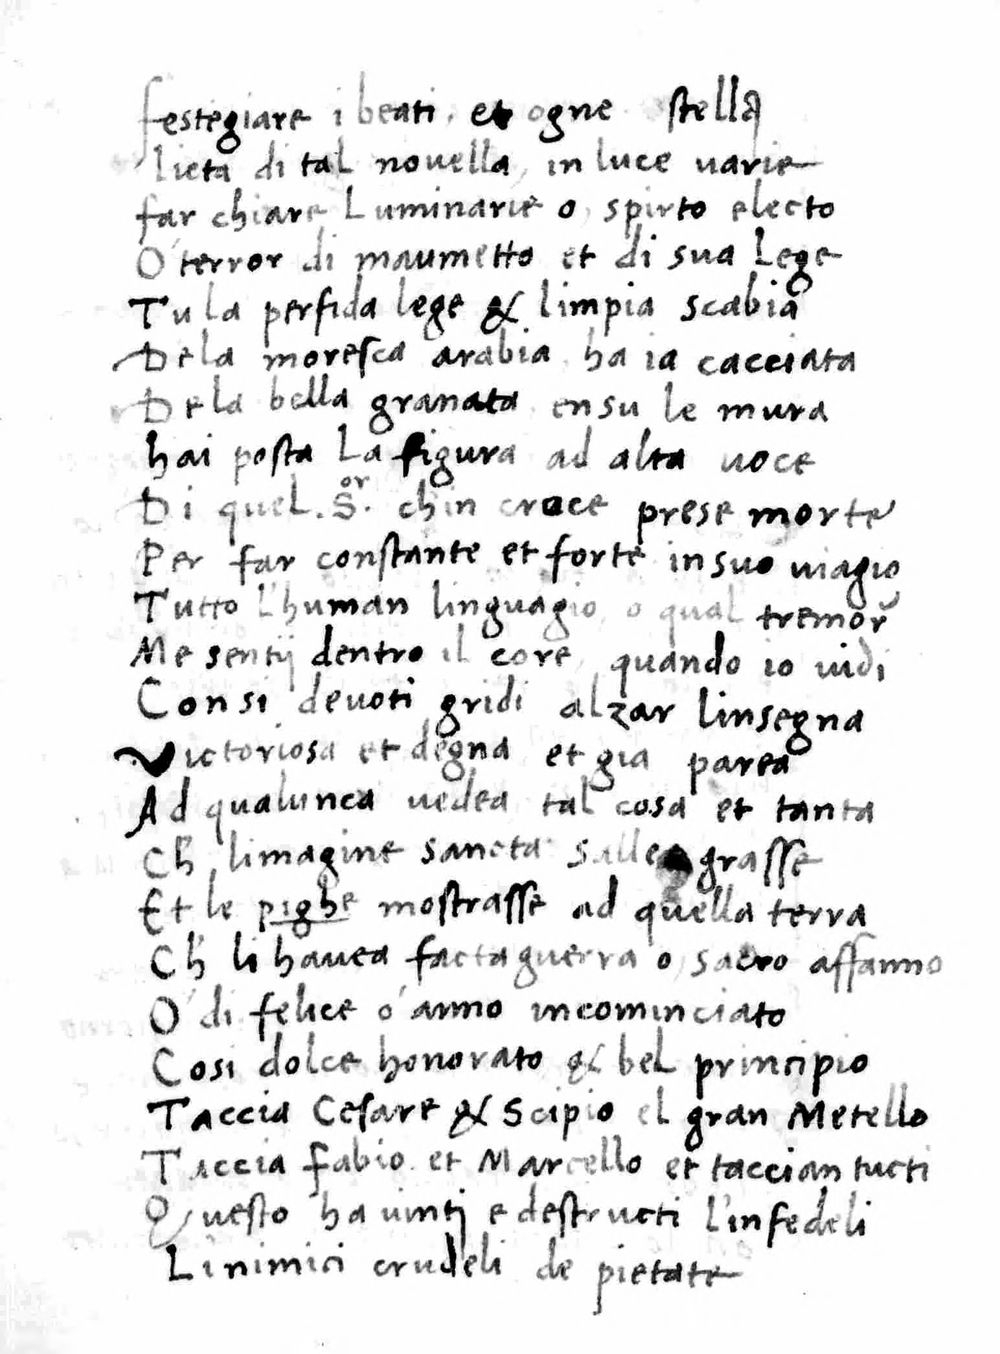 festegiare i beati, et ogne stella
lieta di tal novella, in luce varie
far chiare Luminarie o, spirto electo
O' terror di maumetto et di sua Lege
Tu la perfida lege & limpia scabia
Dela moresca arabia, ha ia cacciata
Dela bella granata ensu le mura
hai posta La figura ad alta voce
Di quel. S.or chin croce prese morte
Per far constante et forte insuo viagio
Tutto l'human linguagio, o qual tremor
Me sentij dentro il core, quando io vidi
Consi devoti gridi alzar linsegna
Victoriosa et degna et gia parea
Ad qualunca vedea tal cosa et tanta
Ch' limagine sancta sallegrasse
Et le pighe mostrasse ad quella terra
Ch' li havea facta guerra o, sacro affanno
O' di felice o' anno incominciato
Cosi dolce honorato & bel principio
Taccia Cesare & Scipio el gran Metello
Taccia fabio et Marcello et taccian tucti
Questo ha vinti e destructi l'infedeli
L'inimici crudeli de pietate